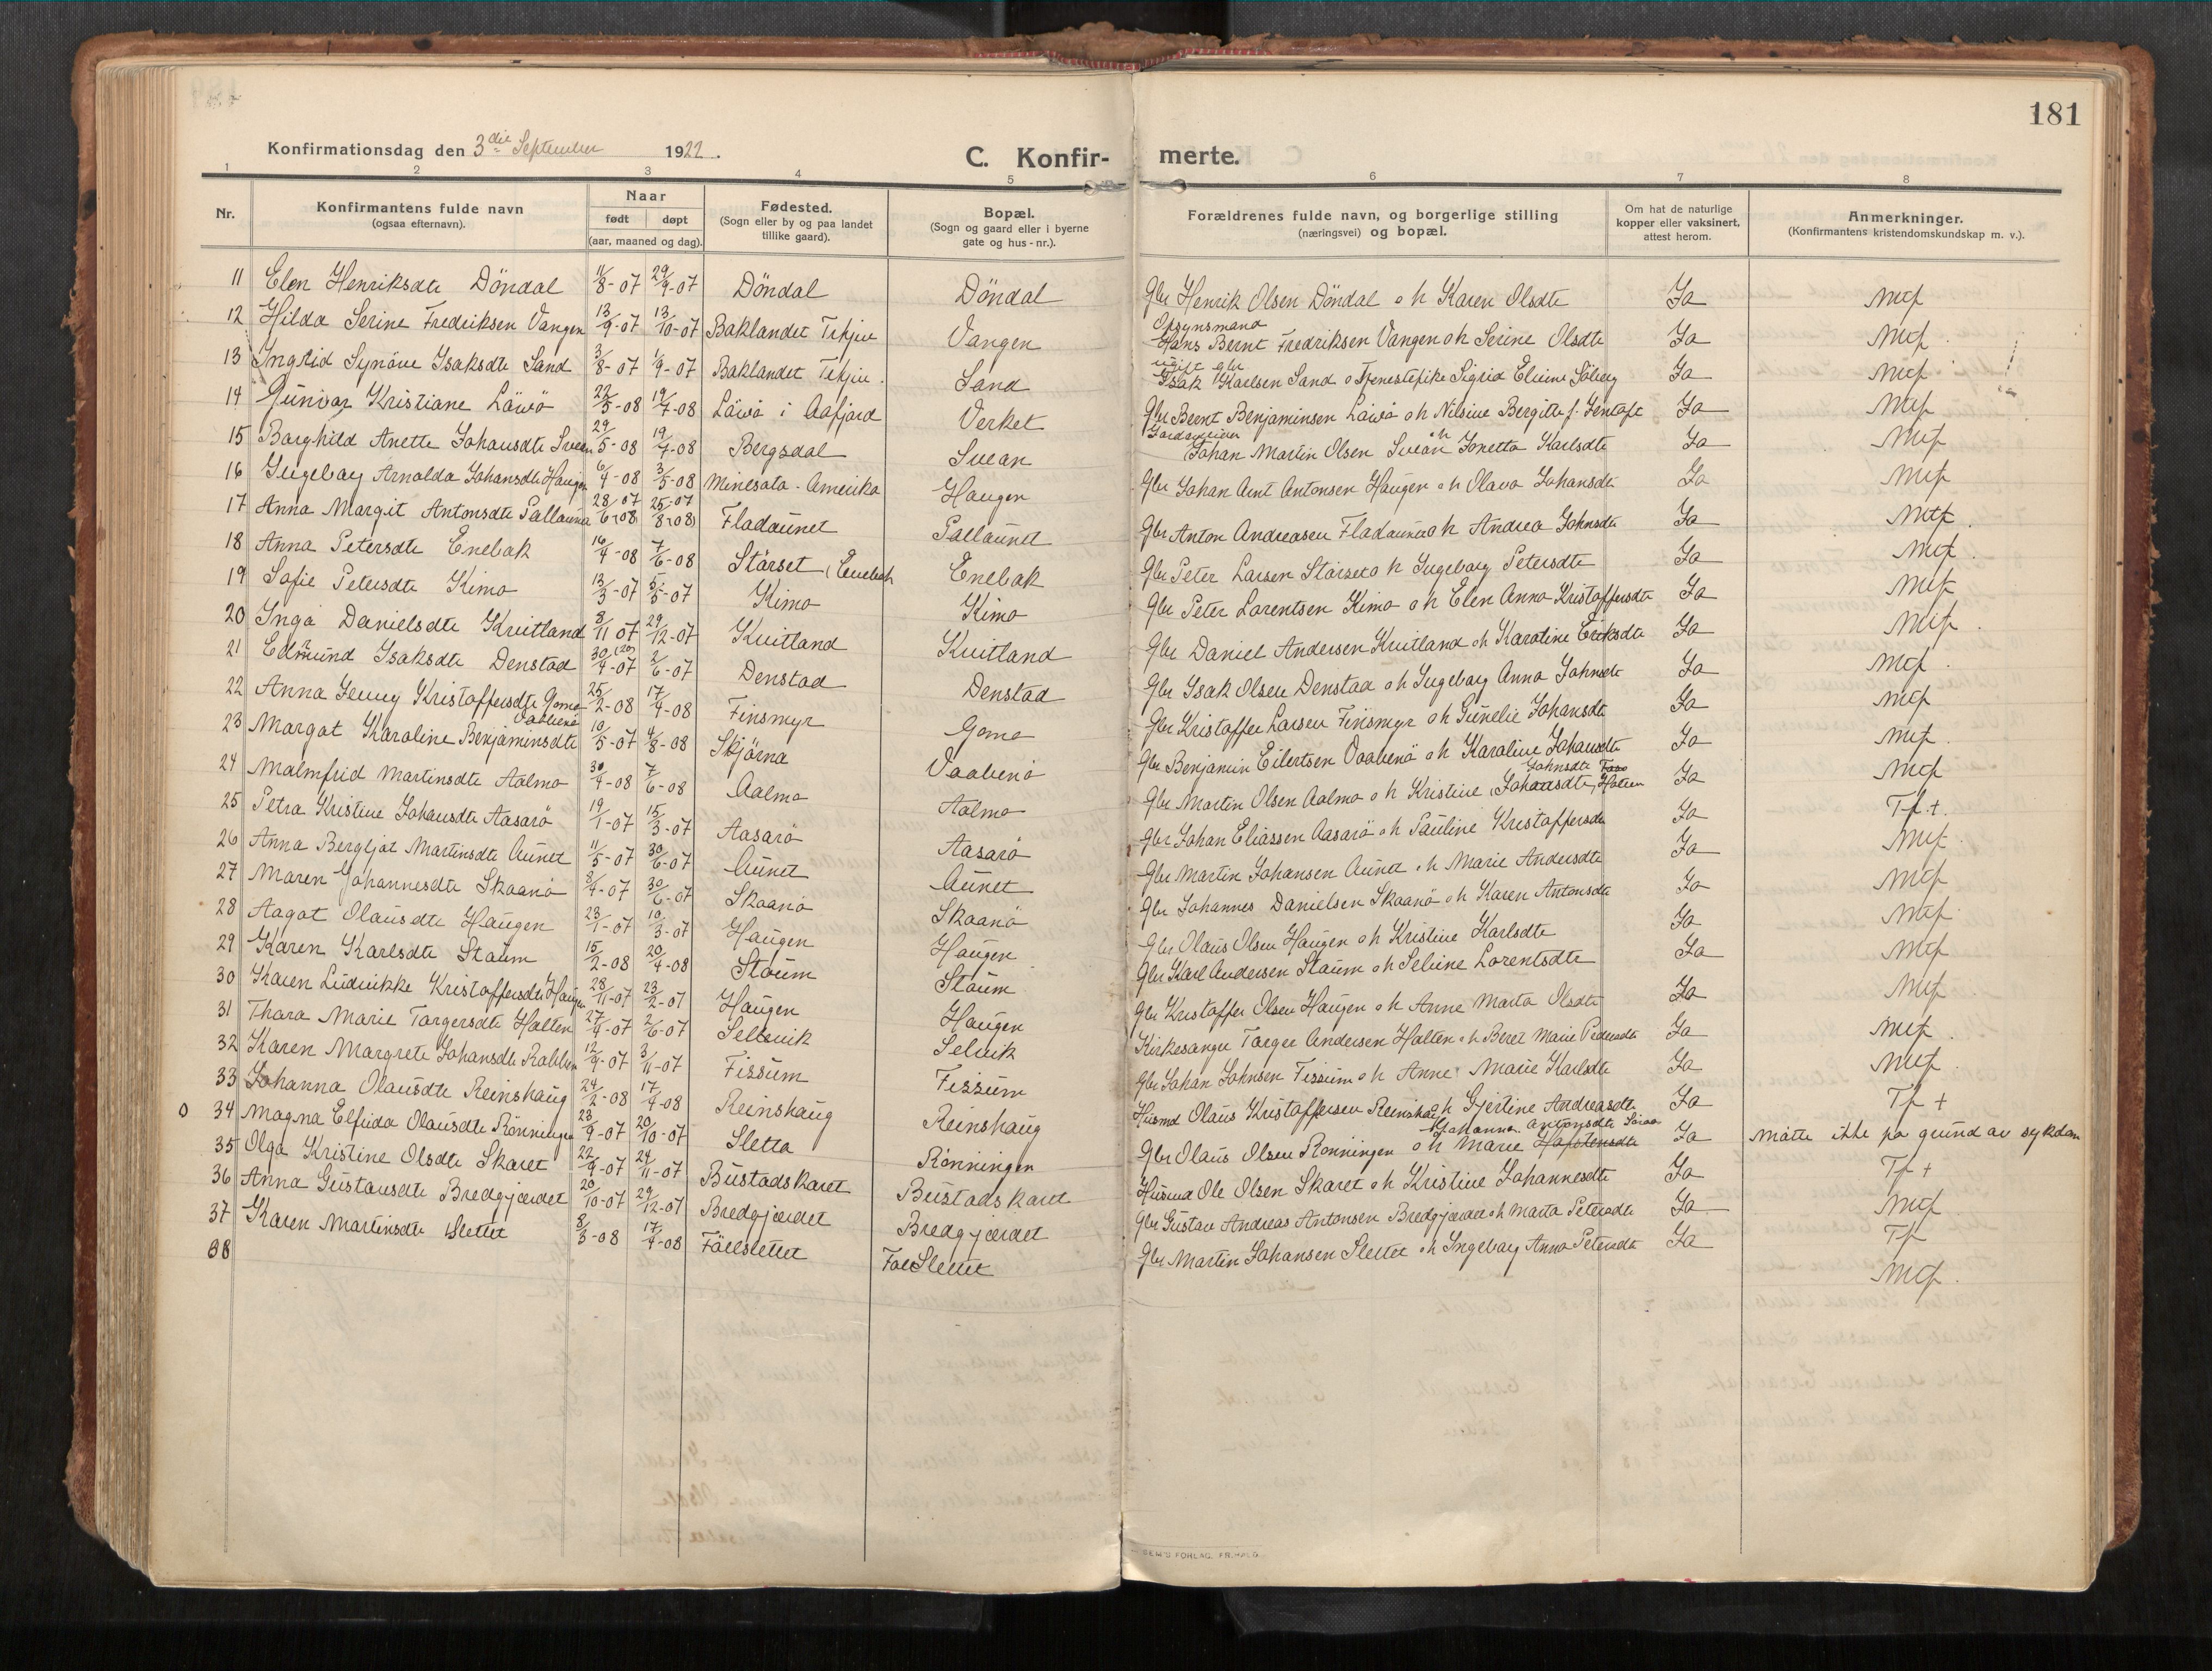 181
Konfirmationsdag den 3die September 1922.
C. Konfir- merte.
1 2 3 4 5 6 7 8
Nr. Konfirmantens fulde navn (ogsaa efternavn). Naar født døpt (aar, maaned og dag). Fødested. (Sogn eller by og paa landet tillike gaard). Bopæl. (Sogn og gaard eller i byerne gate og hus-nr.). Forældrenes fulde navn, og borgerlige stilling (næringsvei) og bopæl. Om hat de naturlige kopper eller vaksinert, attest herom. Anmerkninger. (Konfirmantens kristendomskundskap m. v.).
11 Elen Henriksdtr Döndal 11/8-07 29/9-07 Döndal Döndal Gbr Henrik Olsen Döndal o h Karen Olsdtr Ja Mcf
12 Hilda Serine Fredriksen Vangen 13/9-07 13/10-07 Baklandet Trhjem Vangen Opsynsmand Hans Bernt Fredriksen Vangen o h Serine Olsdtr Ja Mcf.
13 Ingrid Synöve Isaksdtr Sand 3/8-07 1/9-07 Baklandet Trhjem. Sand ugift gbr Isak Karlsen Sand o Tjenestepike Sigrid Eline Söberg Ja Mcf
14 Gunvor Kristiane Lövö 22/5-08 19/7-08 Lövö i Aafjord Verket Gbr Bernt Benjaminsen Lövö o h Nilsine Bergitte f. Jentoft Ja Mcf
15 Borghild Anette Johansdtr Svean 29/5-08 19/7-08 Bergsdal Svean Gardarbeider Johan Martin Olsen Svean o h Jonetta Karlsdtr Ja Mcf
16 Ingeborg Arnolda Johansdtr Haugen 6/4-08 3/5-08 Minesota-Amerika Haugen Gbr Johan Arnt Antonsen Haugen o h Olava Johansdtr Ja Mcf
17 Anna Margit Antonsdtr Pallauna 28/6-07 (08) 25/8-07 (08) Fladaunet Pallaunet Gbr Anton Andreasen Fladauna o h Andrea Johnsdtr Ja Mcf.
18 Anna Petersdtr Enebak 16/4-08 7/6-08 Störset, Enebak Enebak Gbr Peter Larsen Störset o h Ingeborg Petersdtr Ja Mcf.
19 Sofie Petersdtr Kimo 13/3-07 5/5-07 Kimo Kimo Gbr Peter Lorentsen Kimo o h Elen Anna Kristoffersdtr Ja Mcf
20 Inga Danielsdtr Kvitland 8/11 07 29/12-07 Kvitland Kvitland Gbr Daniel Andersen Kvitland o h Karoline Eriksdtr Ja Mcf.
21 Edmund Isaksdtr Denstad 30/4-07 2/6-07 Denstad Denstad Gbr Isak Olsen Denstad o h Ingeborg Anna Johnsdtr Ja Mcf.
22 Anna Jenny Kristoffersdtr Gomo 25/2-08 17/4-08 Finsmyr Gomo Gbr Kristoffer Larsen Finsmyr o h Gunelie Johansdtr Ja Mcf
23 Margot Karoline Benjaminsdtr Vaabenö 10/5-07 4/8-08 Skjörna Vaabenö Gbr Benjamin Eilertsen Vaabenö o h Karoline Johansdtr Ja Mcf.
24 Malmfrid Martinsdtr Aalmo 30/4-08 7/6-08 Aalmo Aalmo Gbr Martin Olsen Aalmo o h Kristine Johnsdtr Johansdtr, Holten Ja Mcf
25 Petra Kristine Johansdtr Aasarö 19/1-07 15/3-07 Aasarö Aasarö Gbr Johan Eliassen Aasarö o h Pauline Kristoffersdtr Ja Tf +.
26 Anna Bergljot Martinsdtr Aunet 11/5-07 30/6-07 Aunet Aunet Gbr Martin Johansen Aunet o h Marie Andersdtr Ja Mcf.
27 Maren Johannesdtr Skaanö 8/4-07 30/6-07 Skaanö Skaanö Gbr Johannes Danielsen Skaanö o h Karen Antonsdtr Ja Mcf
28 Aagot Olausdtr Haugen 23/1-07 10/3-07 Haugen Haugen Gbr Olaus Olsen Haugen o h Kristine Karlsdtr Ja Mcf.
29 Karen Karlsdtr Staum 15/2-08 20/4-08 Staum Staum Gbr Karl Andersen Staum o h Seline Lorentsdtr Ja Mcf
30 Karen Ludvikke Kristoffersdtr Haugen 28/11-07 23/2-07 Haugen Haugen Gbr Kristoffer Olsen Haugen o h Anne Marta Olsdtr Ja Mcf
31 Thora Marie Torgersdtr Holten 27/4-07 2/6-07 Selevik Selvik Kirkesanger Torger Andersen Holten o h Beret Marie Pedersdtr Ja Mcf.
32 Karen Margrete Johansdtr Rabben 12/9-07 3/11-07 Fissum Fissum Gbr Johan Johnsen Fissum o h Anne Marie Karlsdtr Ja Mcf.
33 Johanna Olausdtr Reinshaug 24/2-08 17/4-08 Reinshaug Reinshaug Husmd Olaus Kristoffersen Reinshaug o h Gjertine Andreasdtr Ja Tf +
o 34 Magna Elfrida Olausdtr Rönningen 23/9-07 20/10-07 Sletta Rönningen Gbr Olaus Olsen Rönningen o h Marie Johanna Antonsdtr Ja Mötte ikke pa grund av sykdom
35 Olga Kristine Olsdtr Skaret 22/9-07 24/11-07 Bustadskaret Bustadskaret Husmd Ole Olsen Skaret o h Kristine Johannesdtr Ja Tf +
36 Anna Gustavsdtr Bredgjærdet 20/10-07 29/12-07 Bredgjærdet Bredgjærdet Gbr Gustav Andreas Antonsen Bredgjærdet o h Marta Petersdtr Ja Mcf
37 Karen Martinsdtr Slettet 8/3-08 17/4-08 Fölislettet Slettet Gbr Martin Johansen Slettet o h Ingeborg Anna Petersdtr Ja Tf
38 Mcf.